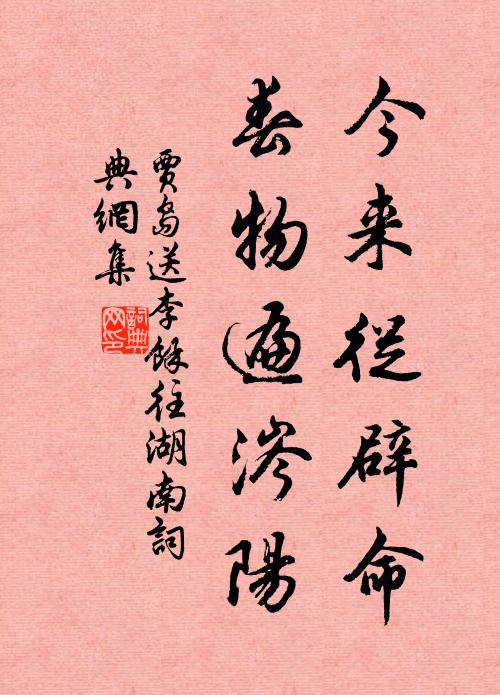 今来從辟命
春物遍涔陽
賈島送李餘往湖南詞
典網集
詞典
网印